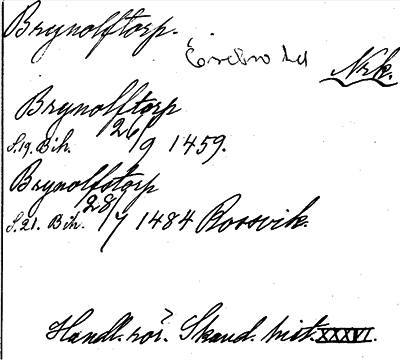 Brynolftorp.
Örebro län
Nrk.
Brynolftorp
S.19. Bih. 26/9 1459.
Brynolfstorp
S.21. Bih. 28/7 1484 Rossvik.
Handl. rör. Skand. hist. XXXVI.